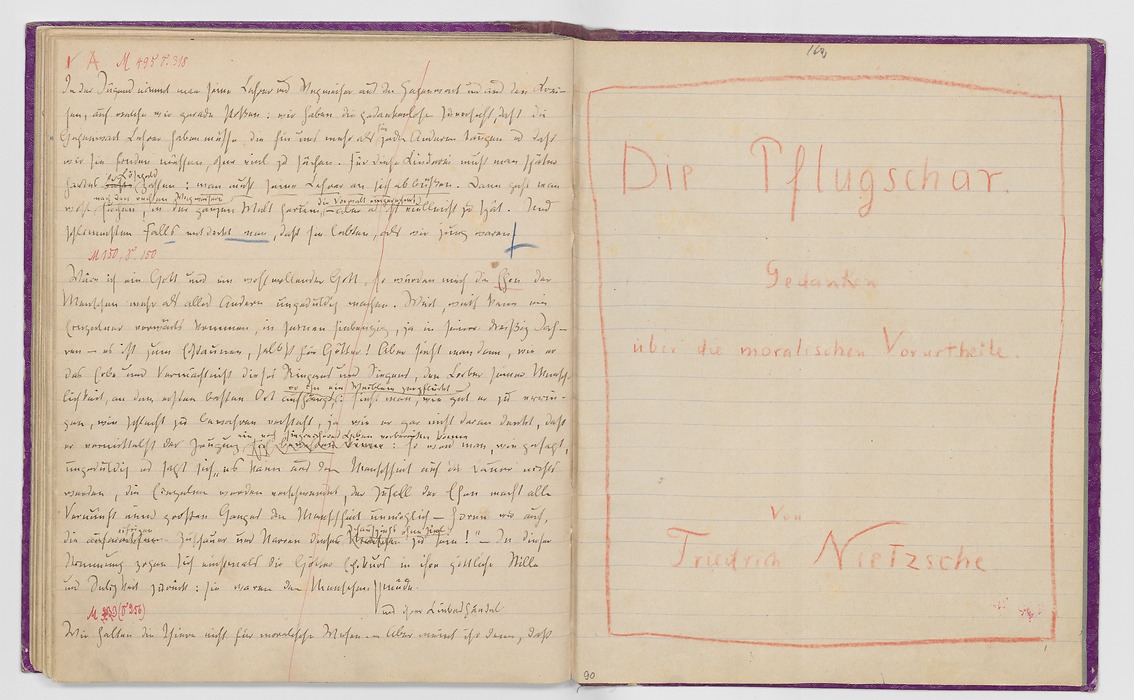 V A M 495 S. 318
In der Jugend nimmt man seine Lehrer und Wegweiser aus der Gegenwart und aus den Krei-
sen, auf welche wir gerade stoßen: wir haben die gedankenlose Zuversicht, daß die
Gegenwart Lehrer haben müsse, die für uns mehr als für jeden Anderen taugen und daß
wir sie finden müssen, ohne viel zu suchen. Für diese Kinderei muß man später
hartes Lösegeld zahlen: man muß seine Lehrer an sich abbüßen. Dann geht man
nach den rechten Wegweisern die Vorwelt eingerechnet,
wohl suchen, in der ganzen Welt herum, – aber es ist vielleicht zu spät. Und
schlimmsten Falls entdeckt man, daß sie lebten, als wir jung waren.
M 150, S. 150
Wäre ich ein Gott und ein wohlwollender Gott, so würden mich die Ehen der
Menschen mehr als alles Andere ungeduldig machen. Weit, weit kann ein
Einzelner vorwärts kommen, in seinen siebenzig, ja in seinen dreißig Jah-
ren – es ist zum Erstaunen, selbst für Götter! Aber sieht man dann, wie er
das Erbe und Vermächtniß dieses Ringens und Siegens, den Lorber seiner Mensch-
wo ihn ein Weiblein zerpflückt
lichkeit, an den ersten besten Ort aufhängt,: sieht man, wie gut er zu errin-
gen, wie schlecht zu bewahren versteht, ja wie er gar nicht daran denkt, daß
ein noch siegreicheres Leben vorbereiten könne
er vermittelst der Zeugung : so wird man, wie gesagt,
ungeduldig und sagt sich „es kann aus der Menschheit auf die Dauer nichts
werden, die Einzelnen werden verschwendet, der Zufall der Ehen macht alle
Vernunft eines großen Ganges der Menschheit unmöglich – hören wir auf,
eifrigen Schauspiels ohne Ziel
die Zuschauer und Narren dieses zu sein!“ – In dieser
Stimmung zogen sich einstmals die Götter Epikurs in ihre göttliche Stille
und Seligkeit zurück: sie waren der Menschen müde.
und ihrer Liebeshändel
M 333 (S 256)
Wir halten die Thiere nicht für moralische Wesen. – Aber meint ihr denn, daß
Die Pflugschar.
Gedanken
über die moralischen Vorurtheile.
Von
Friedrich Nietzsche
90